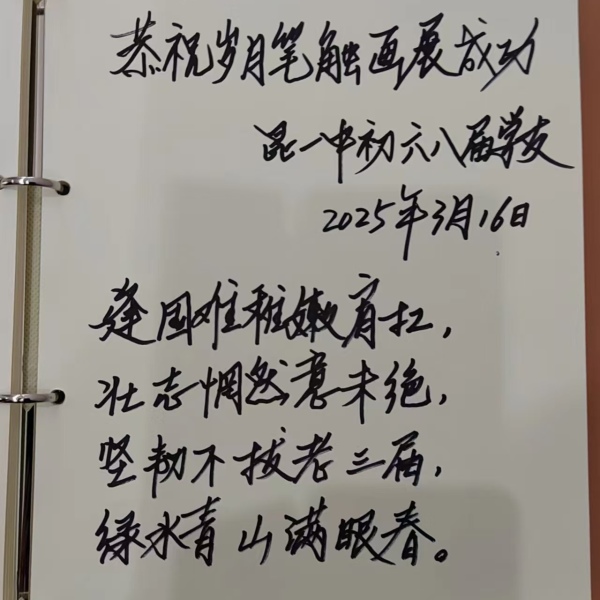 恭祝岁月笔触画展成功
昆一中初六八届学友
2025年3月16日
逢国难稚嫩肩扛,
壮志惘然意未绝,
坚韧不拔老三届,
绿水青山满眼春。